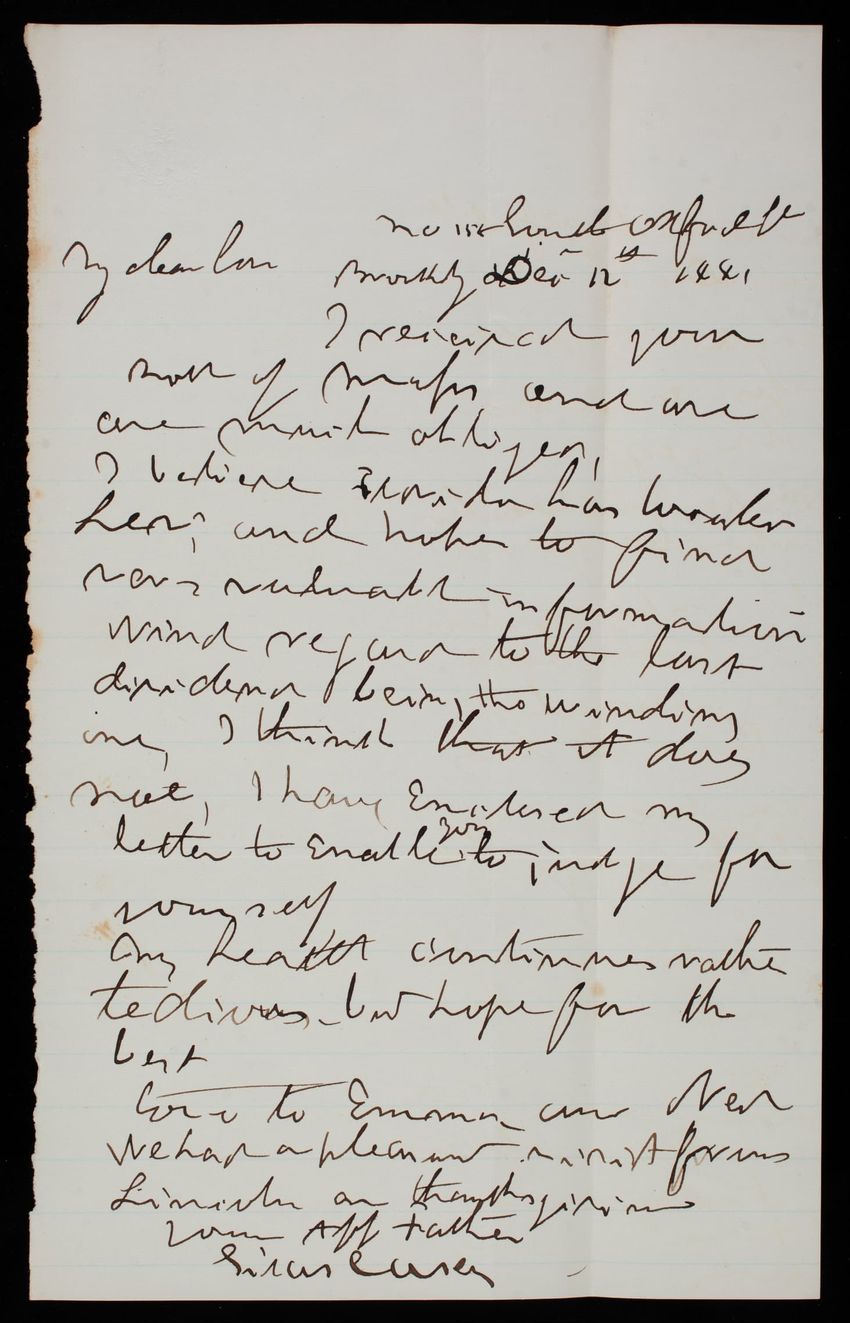 No 118 South Oxford St
My dear Son Brooklyn Dec 12th 1881
I received your
book of maps and we
are much obliged,
I believe Florida has
here, and hope to find
very valuable information
regard to the last
dividend being the winding
one, I think that it does
not, I have Enclosed my
letter to Enable you to judge for
yourself
My health continues rather
tedious but hope for the
best
Love to Emma and Ned
We had a pleasant visit from
Lincoln on thanksgiving
your Aff Father
Silas Casey